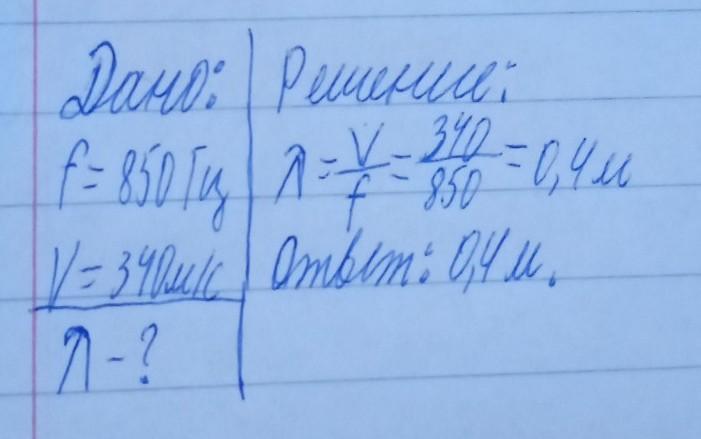 Дано:
f = 850 Гц
V = 340 м/с
λ - ?
Решение:
λ = V/f = 340/850 = 0,4 м
Ответ: 0,4 м.